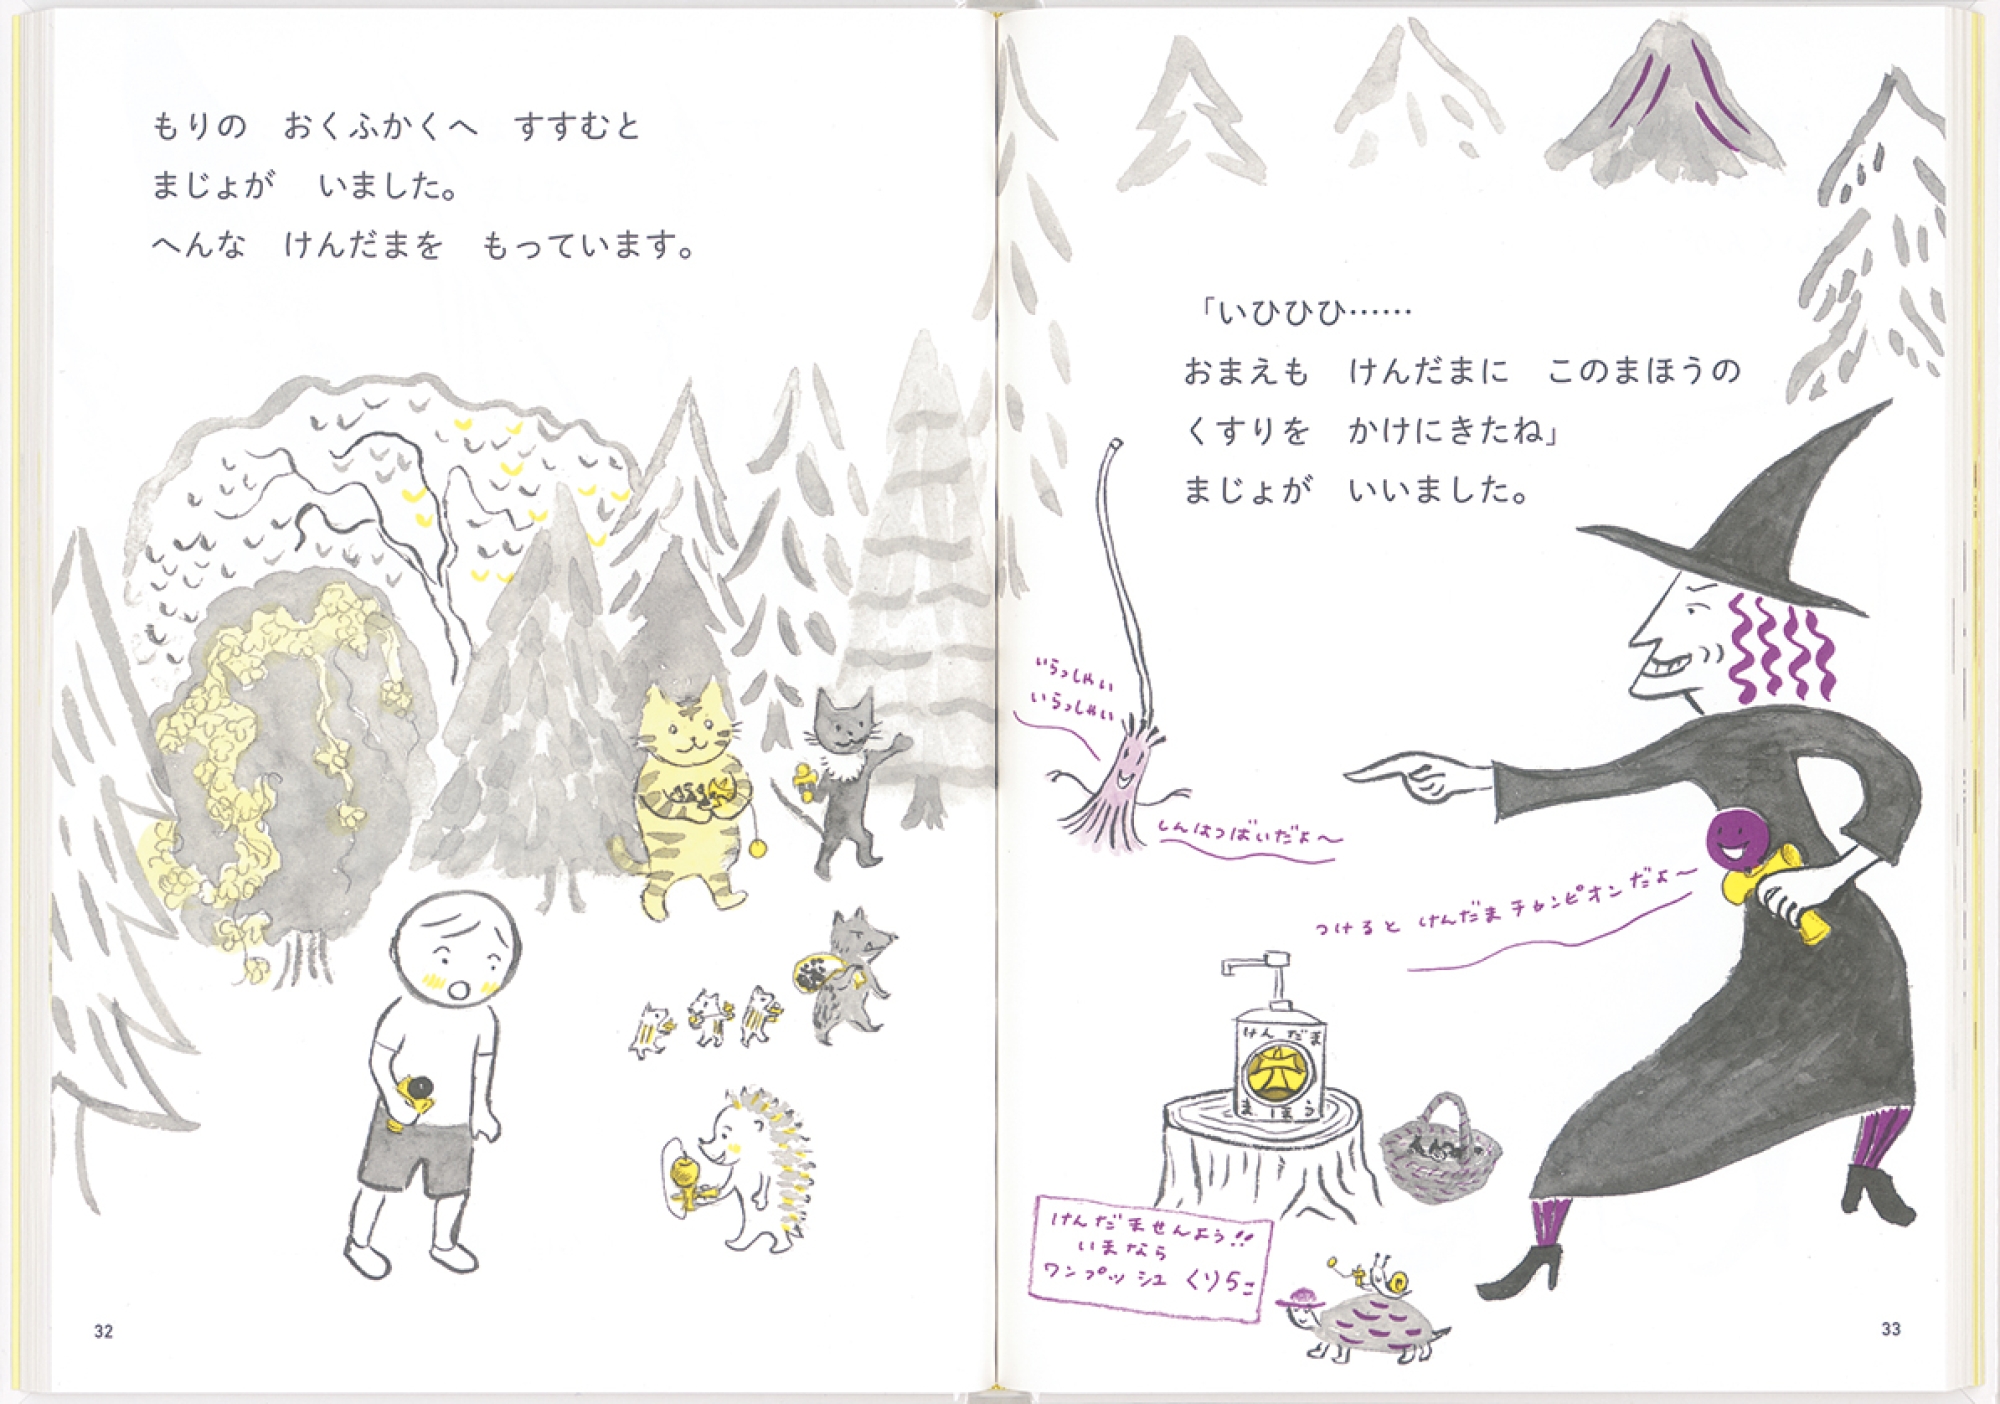 もりの　おくふかくへ　すすむと
まじょが　いました。
へんな　けんだまを　もっています。
32
「いひひひ……
おまえも　けんだまに　このまほうの
くすりを　かけにきたね」
まじょが　いいました。
いらっしゃい
いらっしゃい
しんはつばいだよ〜
つけると けんだまチャンピオンだよ〜
けんだま
まほう
けんだませんよう!!
いまなら
ワンプッシュ くり5こ
33